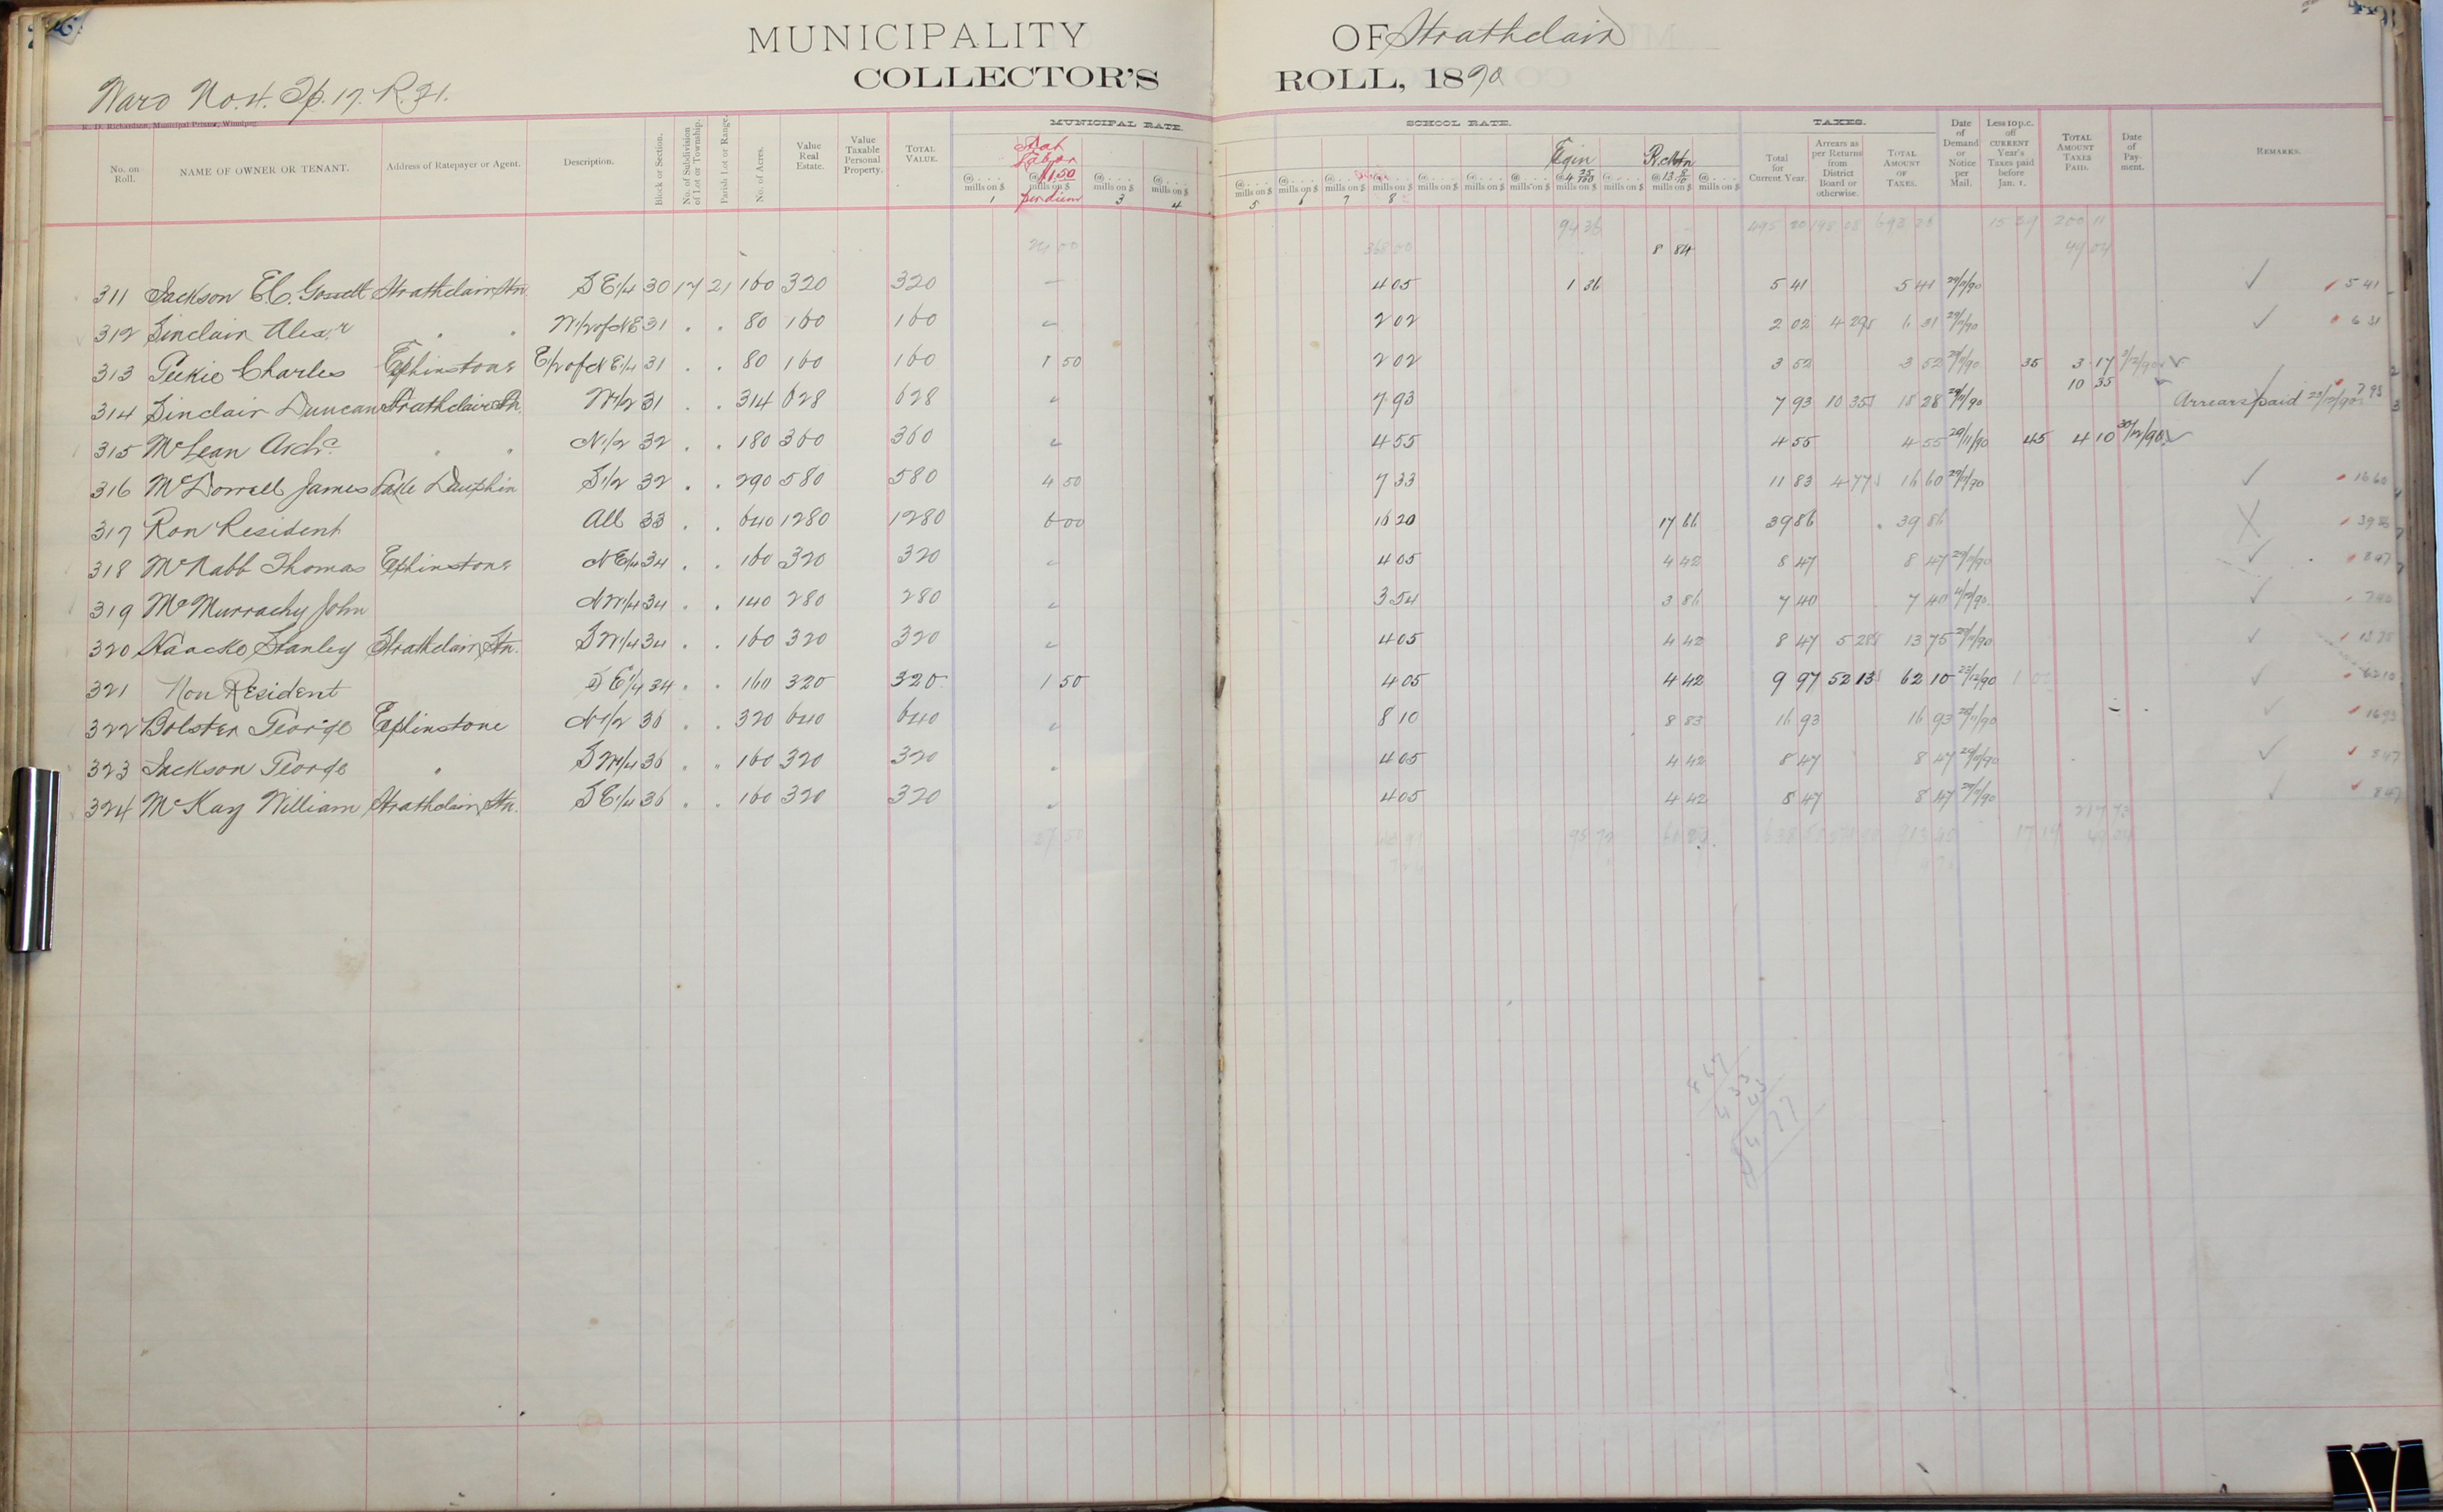 MUNICIPALITY OF Strathclair
COLLECTOR'S ROLL, 1890
Ward No. 4. Tp. 17. R. 21.
R. D. Richardson, Municipal Printer, Winnipeg.
MUNICIPAL RATE. SCHOOL RATE. TAXES.
No. on Roll. NAME OF OWNER OR TENANT. Address of Ratepayer or Agent. Description. Block or Section. No. of Subdivision of Lot or Township. Parish Lot or Range. No. of Acres. Value Real Estate. Value Taxable Personal Property. TOTAL VALUE. Stat Labor @ $1.50 mills on $ per diem 1 3 4 5 6 7 8 Elgin @ 4 25/100 mills on $ @ 13 8/10 mills on $ Total for Current Year. Arrears as per Returns from District Board or otherwise. TOTAL AMOUNT OF TAXES. Date of Demand or Notice per Mail. Less 10 p.c. off CURRENT Year's Taxes paid before Jan. 1. TOTAL AMOUNT TAXES PAID. Date of Payment. REMARKS.
24 00 368 00 94 36 8 84 495 20 198 08 693 28 15 39 200 11
49 04
311 Jackson E.C. Strathclair Stn. S E 1/4 30 17 21 160 320 320 — 4 05 1 36 5 41 5 41 29/11/90 ✓ 5 41
312 Sinclair Alexr " " W 1/2 of NE 31 . . 80 160 160 " 2 02 2 02 4 29 6 31 29/11/90 ✓ 6 31
313 Geekie Charles Elphinstone E 1/2 of N E 1/4 31 . . 80 160 160 1 50 2 02 3 52 3 52 29/11/90 35 3 17 3/12/90 ✓
314 Sinclair Duncan Strathclair Stn. W 1/2 31 . . 314 628 628 " 7 93 7 93 10 35 18 28 29/11/90 10 35 ✓ Arrears paid 23/12/90 7 93
315 McLean Archd " " N 1/2 32 . . 180 360 360 " 4 55 4 55 4 55 29/11/90 45 4 10 30/12/90 ✓
316 McDorrell James Lake Dauphin S 1/2 32 . . 290 580 580 4 50 7 33 11 83 4 77 16 60 29/11/90 ✓ 16 60
317 Non Resident All 33 . . 640 1280 1280 6 00 16 20 17 66 39 86 39 86 X 39 86
318 McNabb Thomas Elphinstone N E 1/4 34 . . 160 320 320 " 4 05 4 42 8 47 8 47 29/11/90 ✓ 8 47
319 McMurrachy John N W 1/4 34 . . 140 280 280 " 3 54 3 86 7 40 7 40 4/12/90 ✓ 7 40
320 Stanley Strathclair Stn. S W 1/4 34 . . 160 320 320 " 4 05 4 42 8 47 5 28 13 75 29/11/90 ✓ 13 75
321 Non Resident S E 1/4 34 . . 160 320 320 1 50 4 05 4 42 9 97 52 13 62 10 23/12/90 ✓ 62 10
322 Bolster George Elphinstone N 1/2 36 . . 320 640 640 " 8 10 8 83 16 93 16 93 28/11/90 ✓ 16 93
323 Jackson George " S W 1/4 36 . " 160 320 320 " 4 05 4 42 8 47 8 47 29/11/90 ✓ 8 47
324 McKay William Strathclair Stn. S E 1/4 36 . . 160 320 320 " 4 05 4 42 8 47 8 47 29/11/90 ✓ 8 47
217 73
37 50 95 72 17 19
8 67
4 33
43
4 77